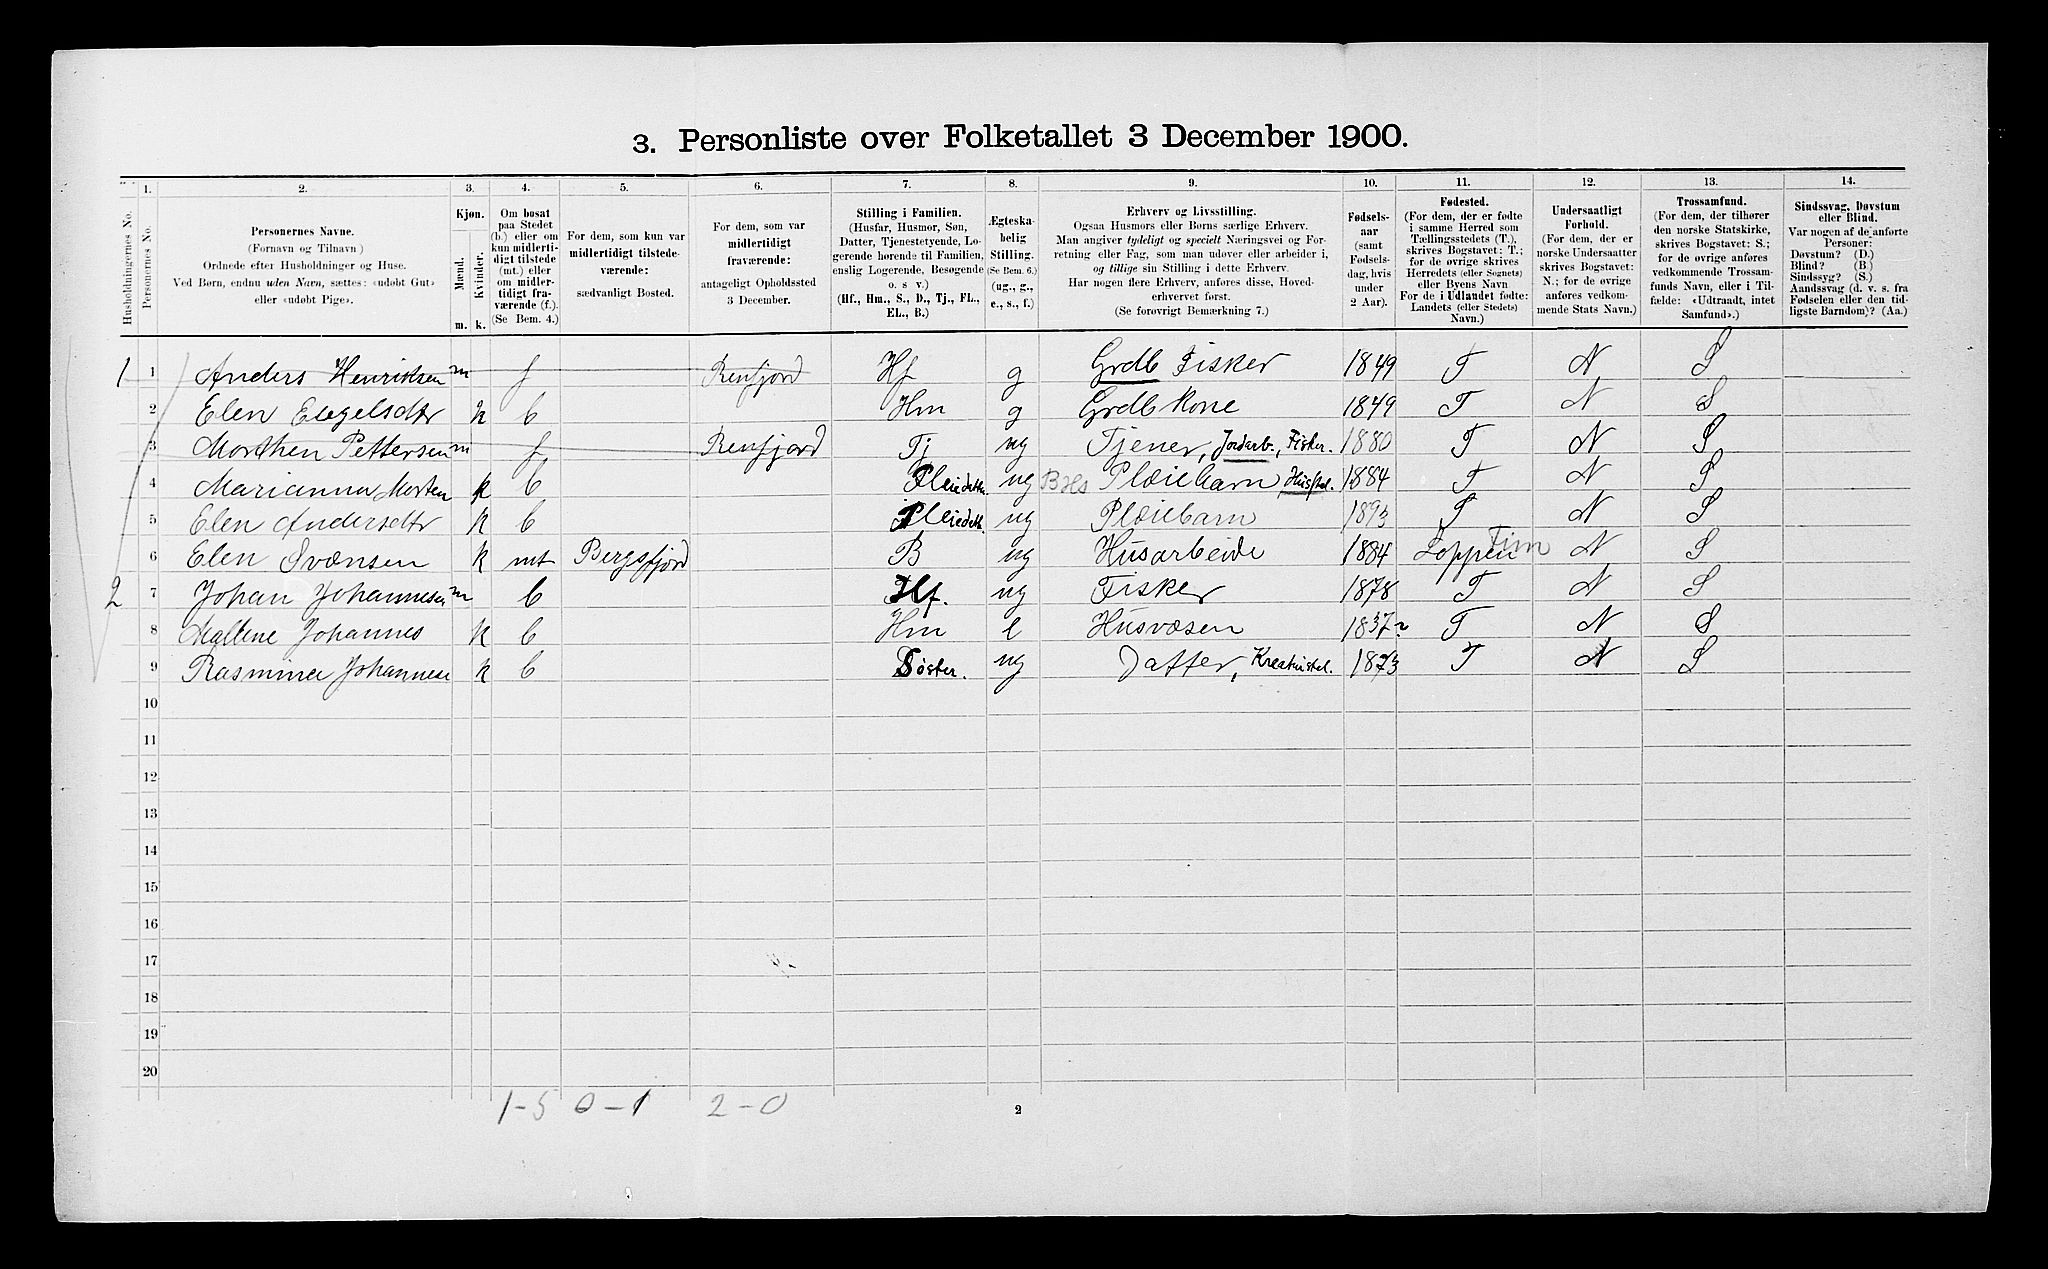 3. Personliste over Folketallet 3 December 1900.
1. 2. 3. 4. 5. 6. 7. 8. 9. 10. 11. 12. 13. 14.
Husholdningernes No.
Personernes No.
Personernes Navne.
(Fornavn og Tilnavn)
Ordnede efter Husholdninger og Huse.
Ved Børn, endnu uden Navn, sættes: «udøbt Gut»
eller «udøbt Pige».
Kjøn.
Mænd. Kvinder.
m. k.
Om bosat
paa Stedet
(b.) eller om
kun midlerti-
digt tilstede
(mt.) eller
om midler-
tidigt fra-
værende (f.).
(Se Bem. 4.)
For dem, som kun var
midlertidigt tilstede-
værende:
sædvanligt Bosted.
For dem, som var
midlertidigt
fraværende:
antageligt Opholdssted
3 December.
Stilling i Familien.
(Husfar, Husmor, Søn,
Datter, Tjenestetyende, Lo-
gerende hørende til Familien,
enslig Logerende, Besøgende
o. s v.)
(Hf., Hm., S., D., Tj., FL.,
EL., B.)
Ægteska-
belig
Stilling.
(Se Bem. 6.)
(ug., g.,
e., s., f.)
Erhverv og Livsstilling.
Ogsaa Husmors eller Børns særlige Erhverv.
Man angiver tydeligt og specielt Næringsvei og For-
retning eller Fag, som man udøver eller arbeider i,
og tillige sin Stilling i dette Erhverv.
Har nogen flere Erhverv, anføres disse, Hoved-
erhvervet først.
(Se forøvrigt Bemærkning 7.)
Fødsels-
aar
(samt
Fødsels-
dag, hvis
under
2 Aar).
Fødested.
(For dem, der er fødte
i samme Herred som
Tællingsstedets (T.),
skrives Bogstavet: T.;
for de øvrige skrives
Herredets (eller Sognets)
eller Byens Navn
For de i Udlandet fødte:
Landets (eller Stedets)
Navn.)
Undersaatligt
Forhold.
(For dem, der er
norske Undersaatter
skrives Bogstavet:
N.; for de øvrige
anføres vedkom-
mende Stats Navn.)
Trossamfund.
(For dem, der tilhører
den norske Statskirke,
skrives Bogstavet: S.;
for de øvrige anføres
vedkommende Trossam-
funds Navn, eller i Til-
fælde: «Udtraadt, intet
Samfund».)
Sindssvag, Døvstum
eller Blind.
Var nogen af de anførte
Personer:
Døvstum? (D.)
Blind? (B.)
Sindssyg? (S.)
Aandssvag (d. v. s. fra
Fødselen eller den tid-
ligste Barndom)? (Aa.)
1 1 Anders Henriksen m f Renfjord Hf g Grdb Fisker 1849 T N S
2 Elen Engelsdtr k b Hm g Grdb kone 1849 T N S
3 Morthen Pettersen m f Renfjord Tj ug Tjener, Jordarb., Fisker. 1880 T N S
4 Marianna Morten k b Pleiedatter. ug Plæiebarn, Husstel. 1884 T N S
5 Elen Andersdtr k b Pleiedatt. ug Plæiebarn 1893 T N S
6 Elen Svænsen k mt Bergsfjord B ug Husarbeide 1884 Loppen Finm N S
2 7 Johan Johannesen m b Hf. ug Fisker 1878 T N S
8 Maltene Johannes k b Hm e Husvæsen 1837 T N S
9 Rasmine Johannese k b Søster. ug Datter, Kreaturstel. 1873 T N S
10
11
12
13
14
15
16
17
18
19
20
1-5 0-1 2-0
2